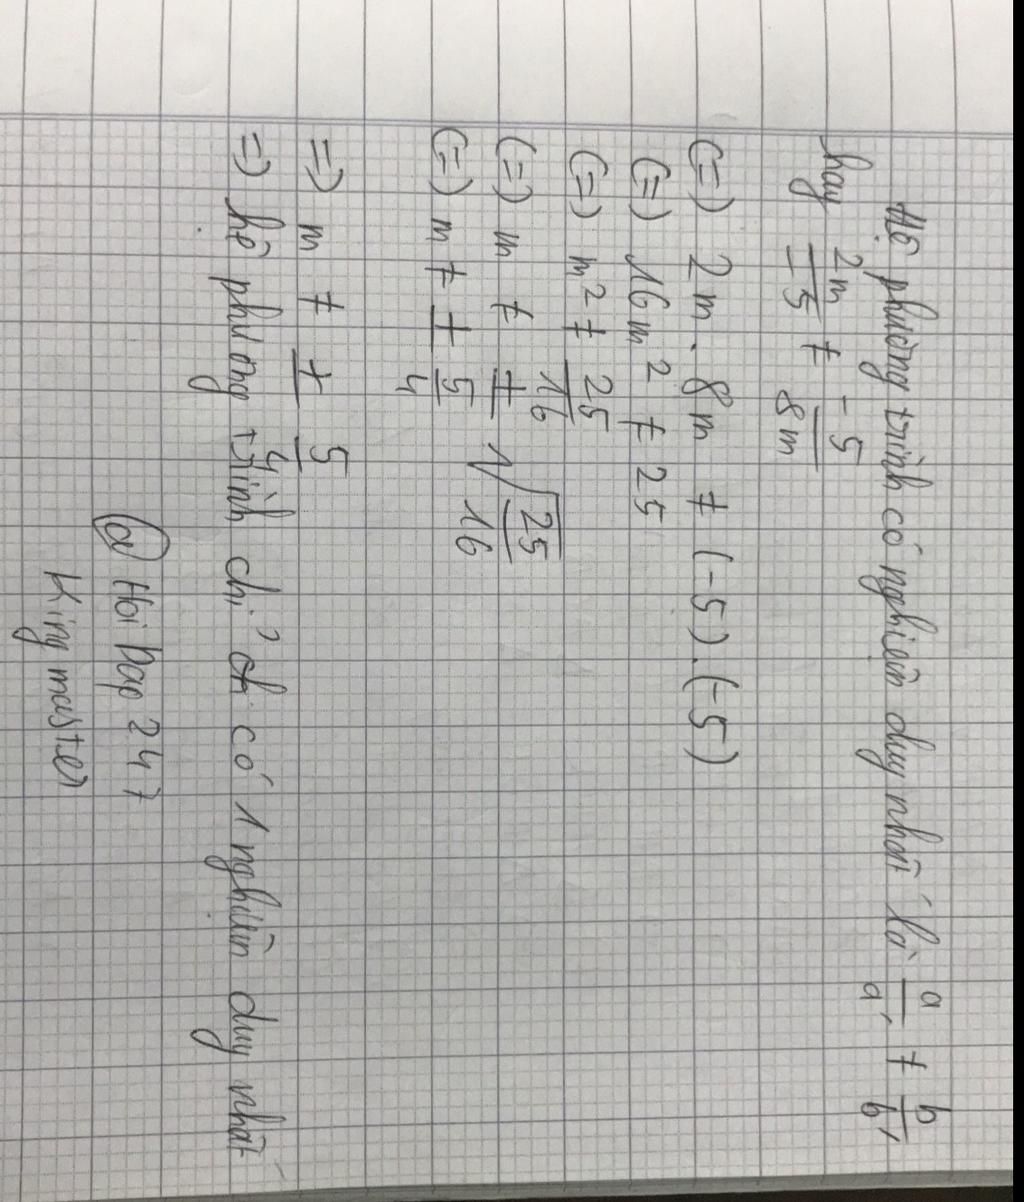 Hệ phương trình có nghiệm duy nhất là a/a' ≠ b/b'
hay 2m/-5 ≠ -5/8m
(=) 2m. 8m ≠ (-5).(-5)
(=) 16m² ≠ 25
(=) m² ≠ 25/16
(=) m ≠ ± √25/16
(=) m ≠ ± 5/4
=) m ≠ ± 5/4
=) hệ phương trình chỉ có 1 nghiệm duy nhất
@ Hoi Dap 247
King master